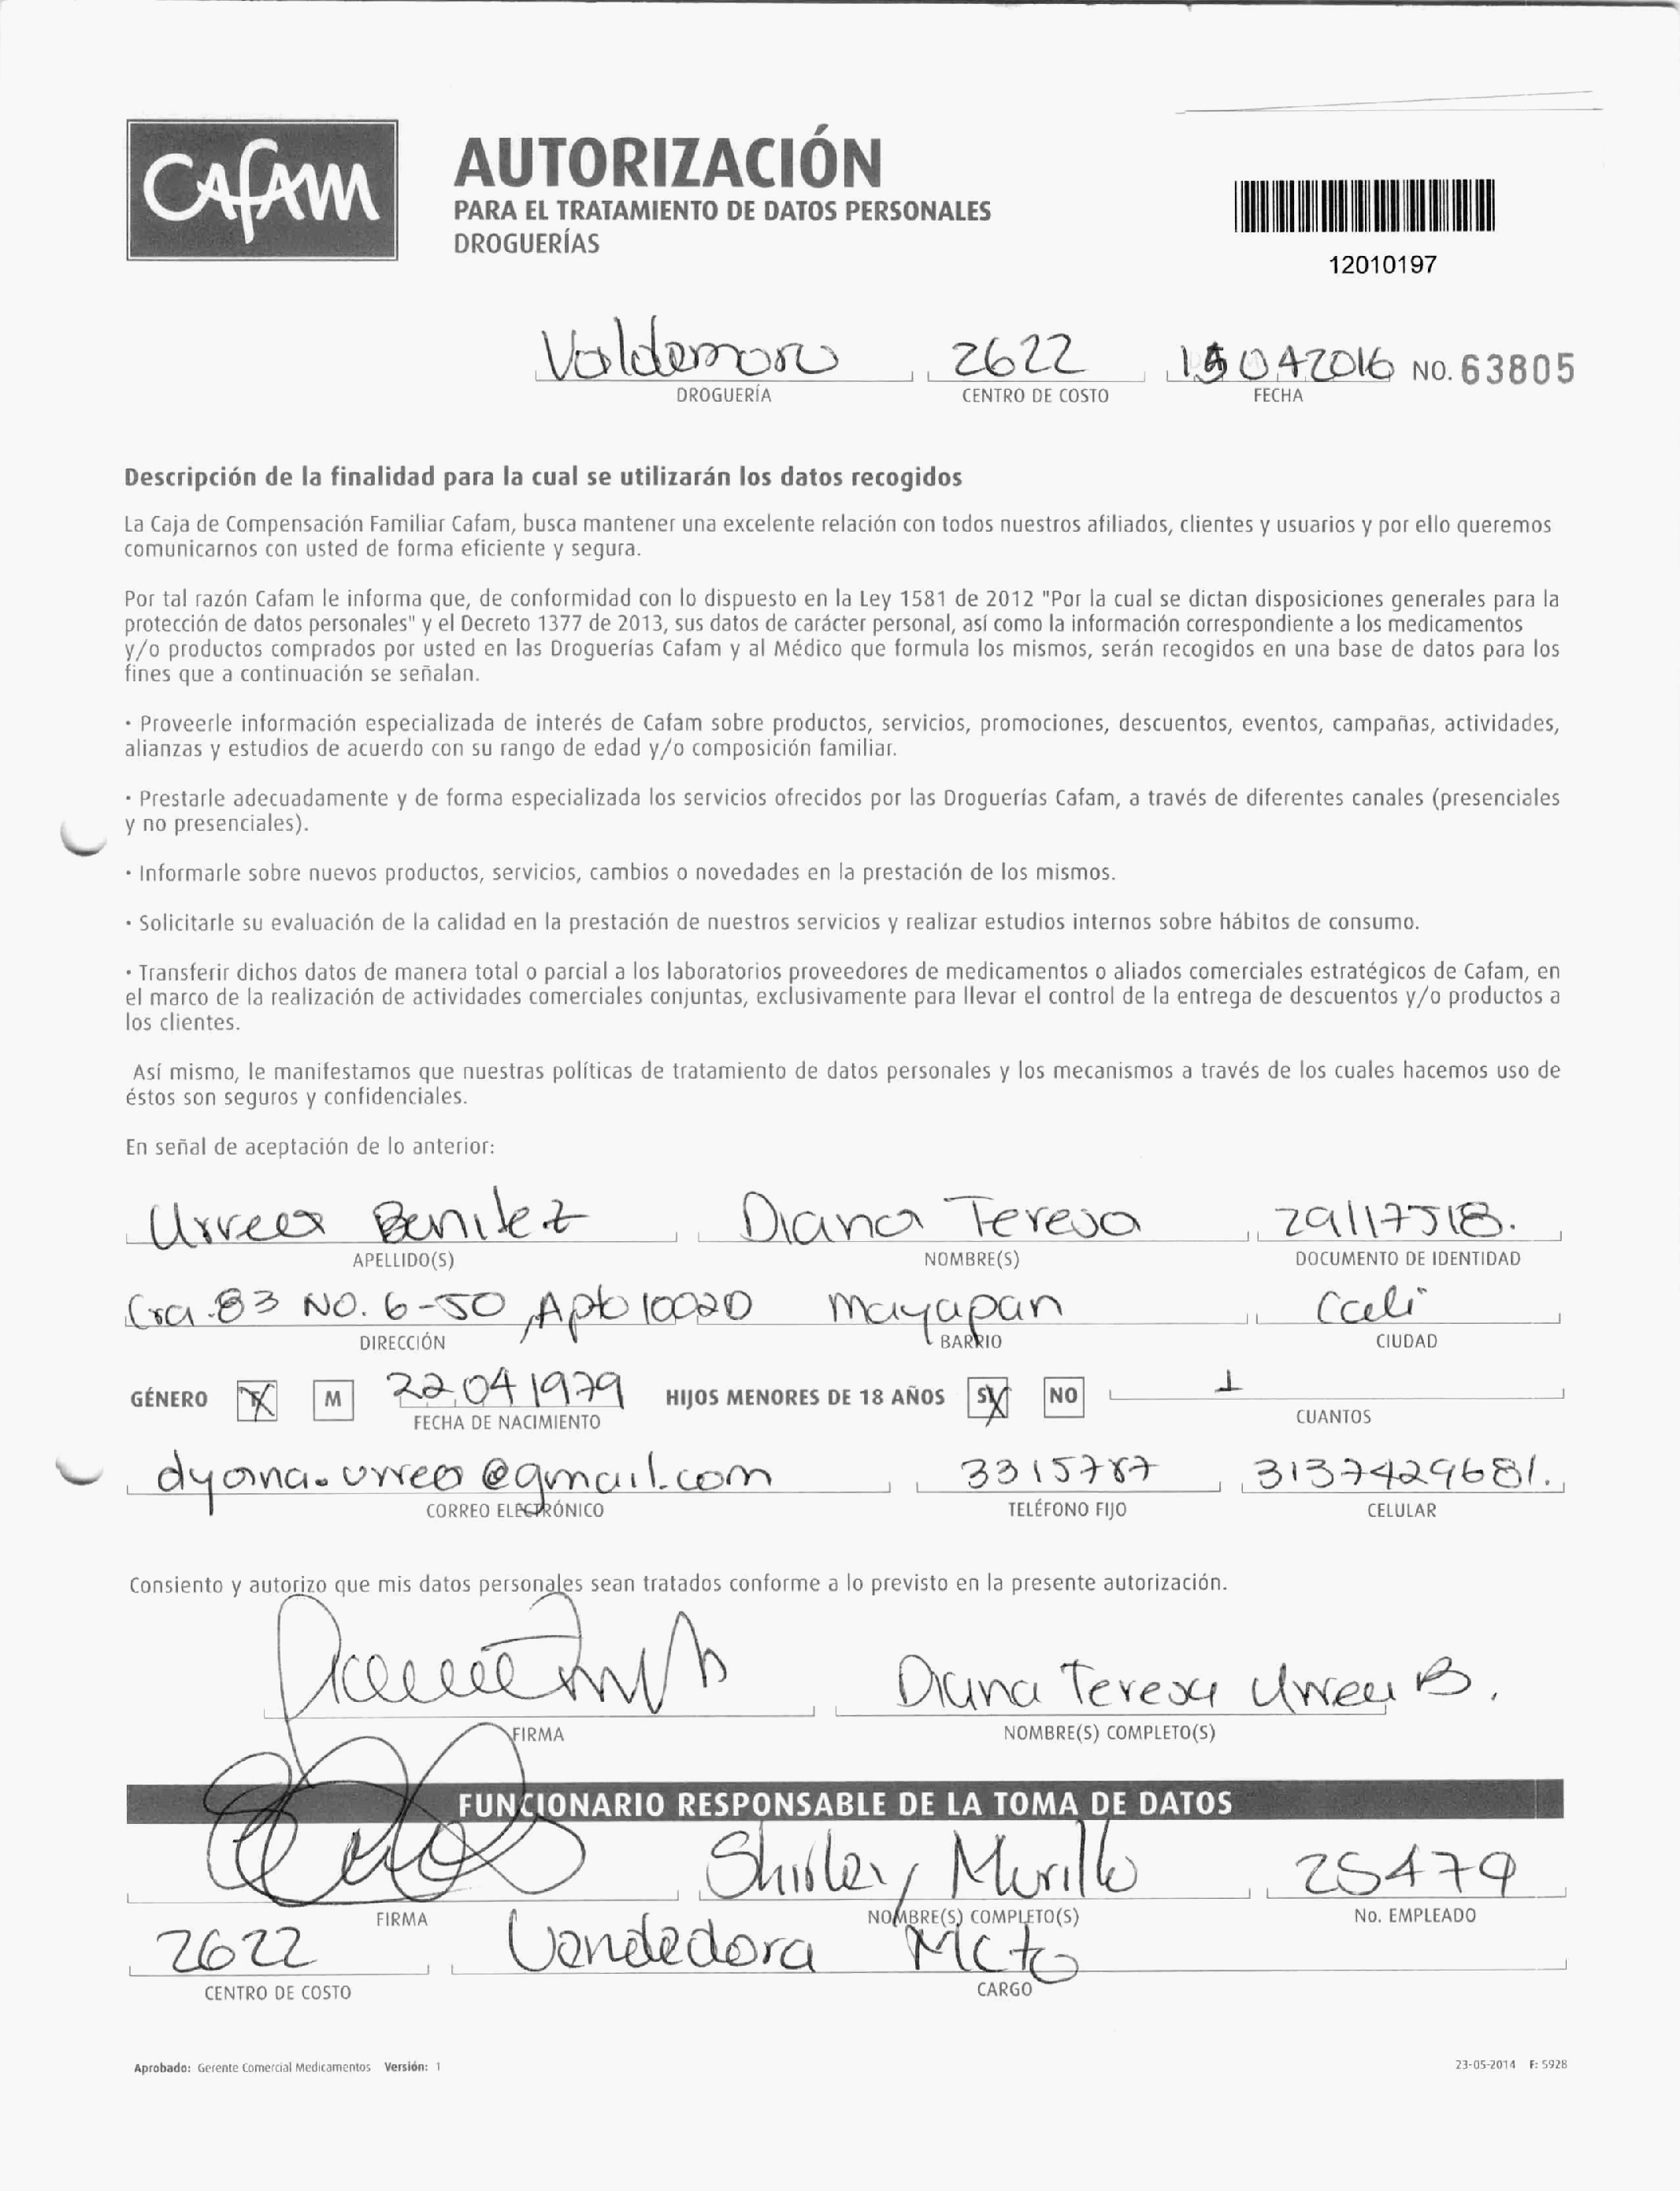 CAFAM
AUTORIZACIÓN
PARA EL TRATAMIENTO DE DATOS PERSONALES
DROGUERÍAS
12010197
Valdemoro 2622 042016 NO. 63805
DROGUERÍA CENTRO DE COSTO FECHA
Descripción de la finalidad para la cual se utilizarán los datos recogidos
La Caja de Compensación Familiar Cafam, busca mantener una excelente relación con todos nuestros afiliados, clientes y usuarios y por ello queremos
comunicarnos con usted de forma eficiente y segura.
Por tal razón Cafam le informa que, de conformidad con lo dispuesto en la Ley 1581 de 2012 "Por la cual se dictan disposiciones generales para la
protección de datos personales" y el Decreto 1377 de 2013, sus datos de carácter personal, así como la información correspondiente a los medicamentos
y/o productos comprados por usted en las Droguerías Cafam y al Médico que formula los mismos, serán recogidos en una base de datos para los
fines que a continuación se señalan.
· Proveerle información especializada de interés de Cafam sobre productos, servicios, promociones, descuentos, eventos, campañas, actividades,
alianzas y estudios de acuerdo con su rango de edad y/o composición familiar.
· Prestarle adecuadamente y de forma especializada los servicios ofrecidos por las Droguerías Cafam, a través de diferentes canales (presenciales
y no presenciales).
· Informarle sobre nuevos productos, servicios, cambios o novedades en la prestación de los mismos.
· Solicitarle su evaluación de la calidad en la prestación de nuestros servicios y realizar estudios internos sobre hábitos de consumo.
· Transferir dichos datos de manera total o parcial a los laboratorios proveedores de medicamentos o aliados comerciales estratégicos de Cafam, en
el marco de la realización de actividades comerciales conjuntas, exclusivamente para llevar el control de la entrega de descuentos y/o productos a
los clientes.
Así mismo, le manifestamos que nuestras políticas de tratamiento de datos personales y los mecanismos a través de los cuales hacemos uso de
éstos son seguros y confidenciales.
En señal de aceptación de lo anterior:
Urrea Benitez Diana Teresa 29117518.
APELLIDO(S) NOMBRE(S) DOCUMENTO DE IDENTIDAD
Cra 83 NO. 6-50, Apto 1002D mayapan Cali
DIRECCIÓN BARRIO CIUDAD
GÉNERO F M 22 04 1979 HIJOS MENORES DE 18 AÑOS SI NO 1
FECHA DE NACIMIENTO CUANTOS
dyana.urrea@gmail.com 3315787 3137429681.
CORREO ELECTRÓNICO TELÉFONO FIJO CELULAR
Consiento y autorizo que mis datos personales sean tratados conforme a lo previsto en la presente autorización.
Diana Teresa Urrea B.
FIRMA NOMBRE(S) COMPLETO(S)
FUNCIONARIO RESPONSABLE DE LA TOMA DE DATOS
Shirley Murillo 25479
FIRMA NOMBRE(S) COMPLETO(S) No. EMPLEADO
2622 Vendedora Mcto
CENTRO DE COSTO CARGO
Aprobado: Gerente Comercial Medicamentos Versión: 1 23-05-2014 F: 5928